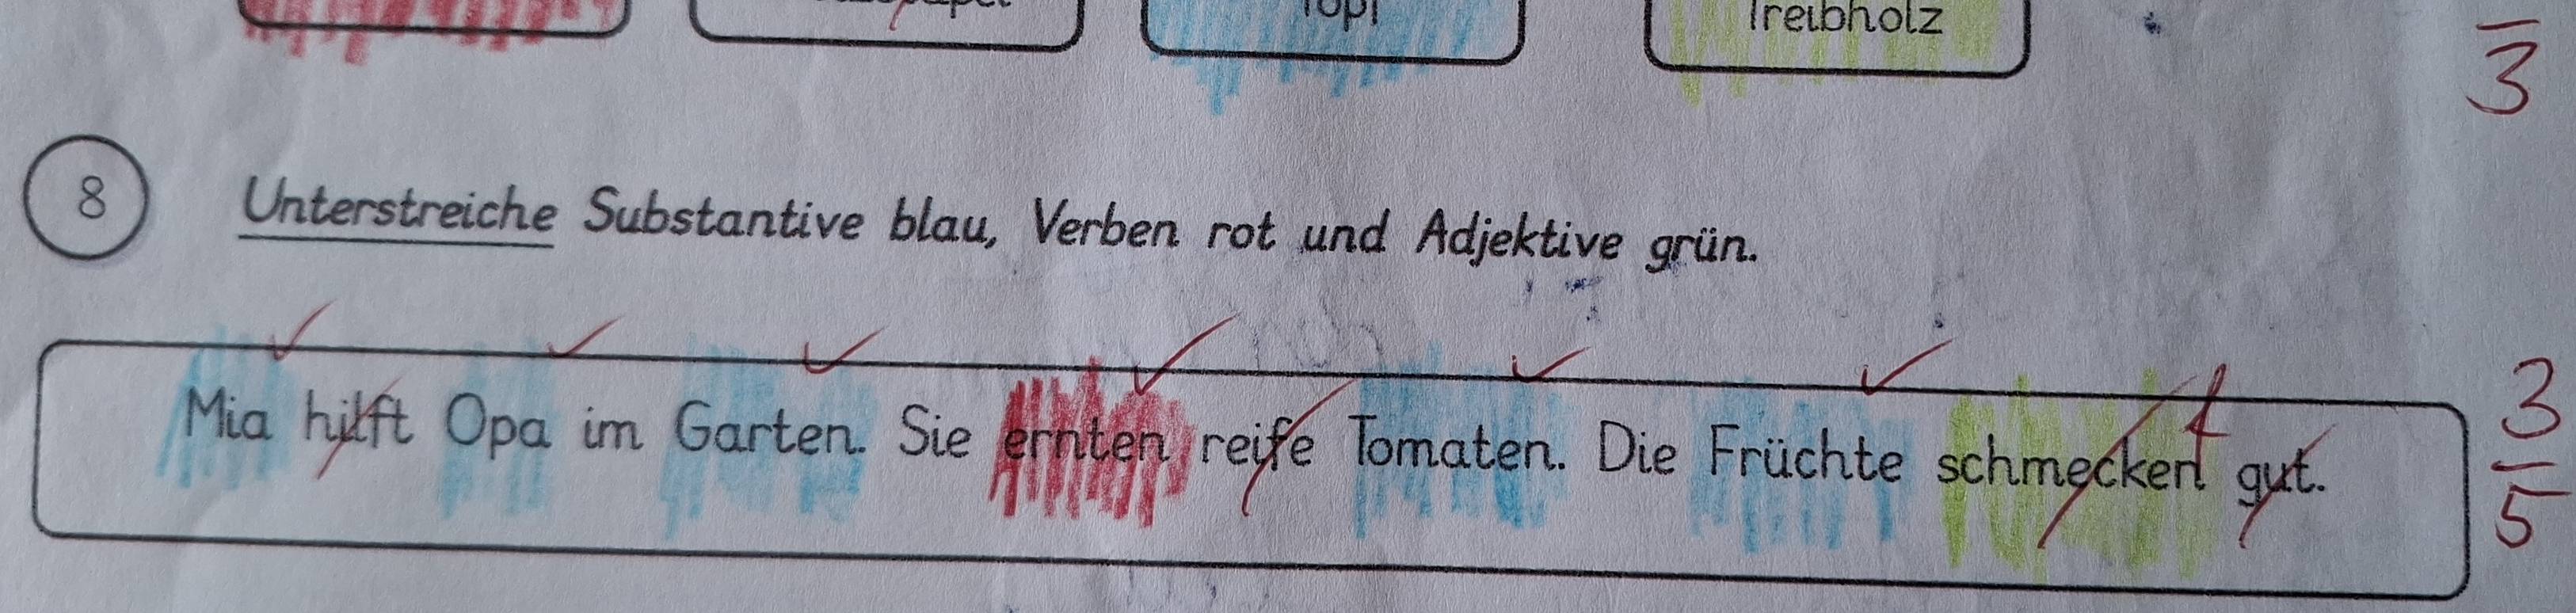 Treibholz
3
8
Unterstreiche Substantive blau, Verben rot und Adjektive grün.
Mia hilft Opa im Garten. Sie ernten reife Tomaten. Die Früchte schmecken gut.
3
5